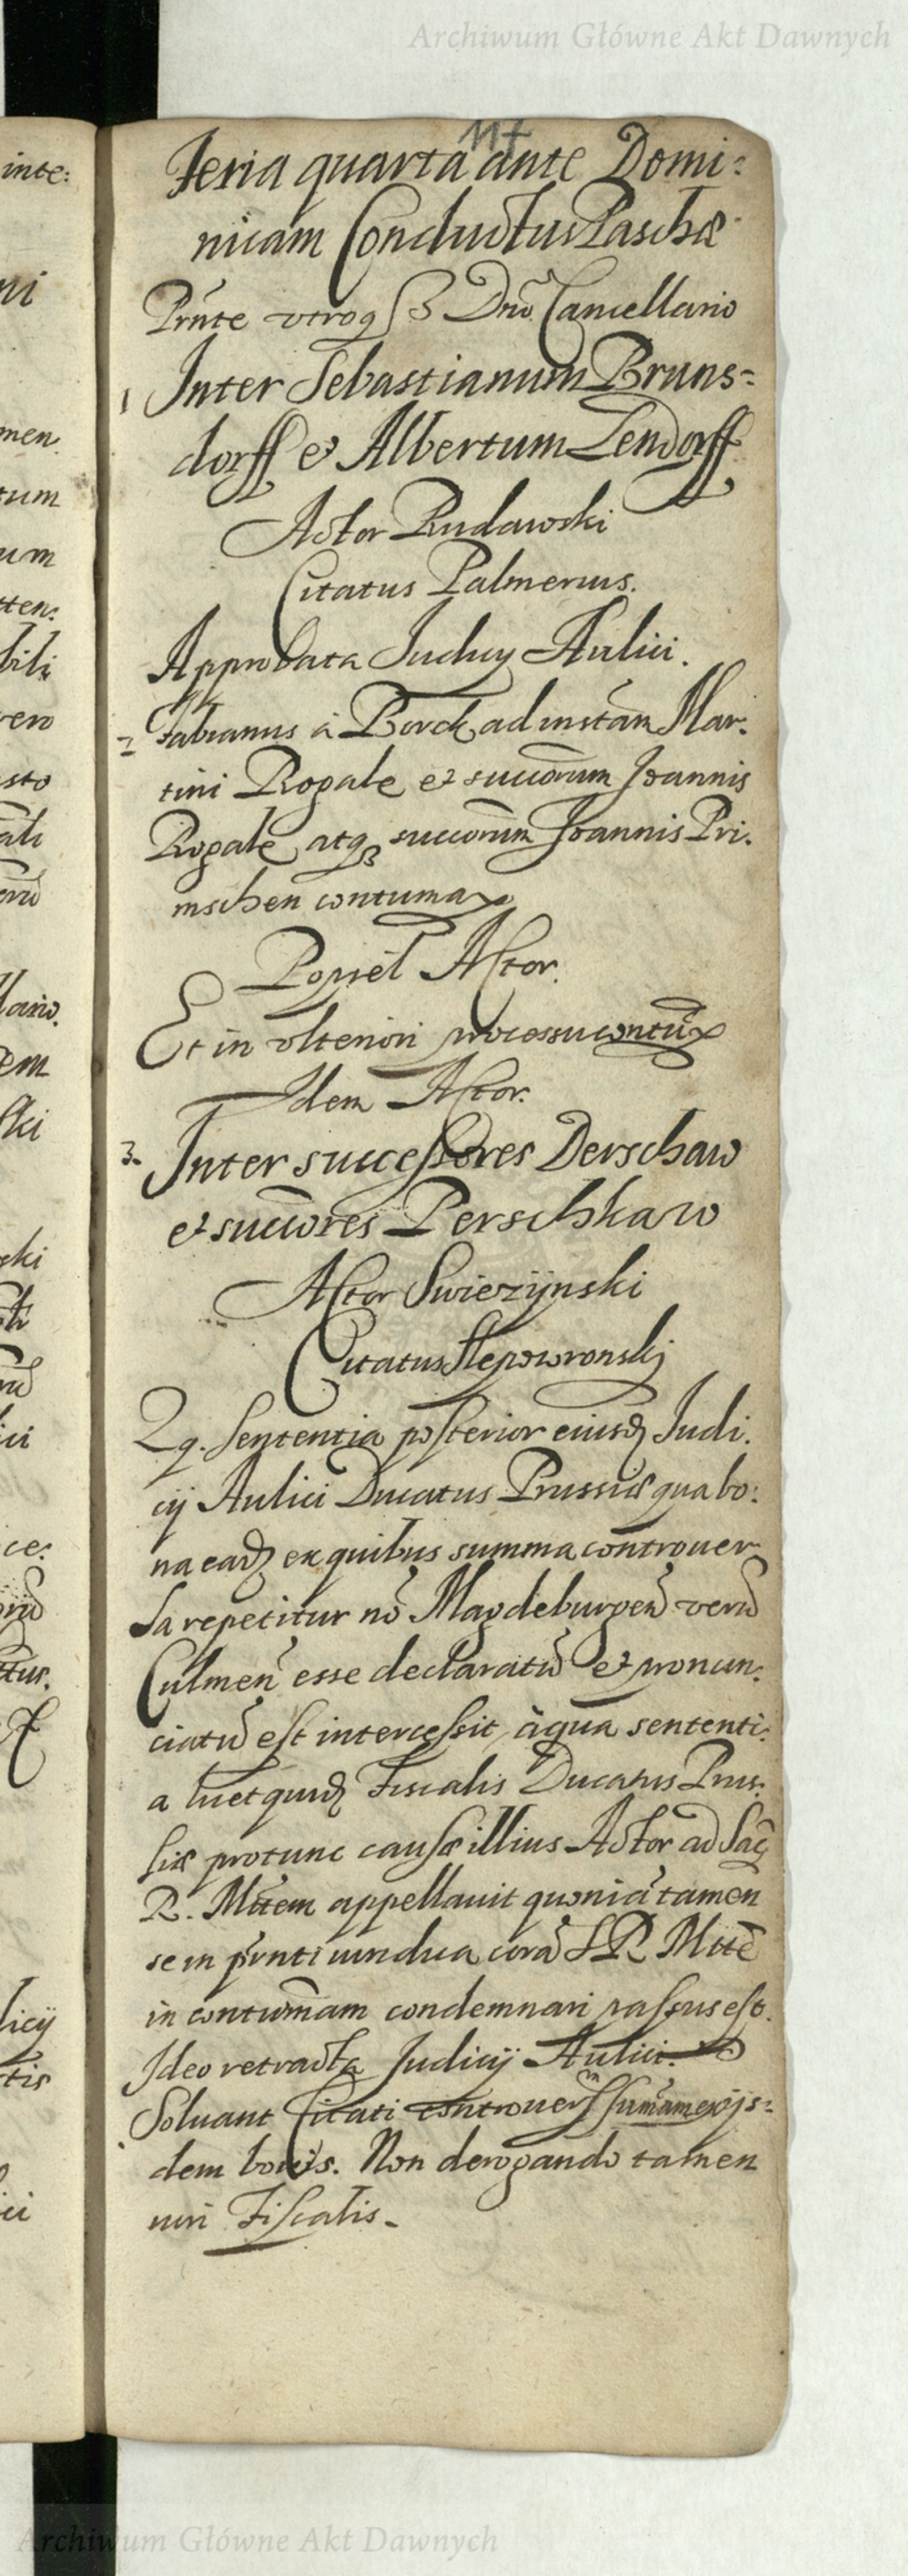 Archiwum Główne Akt Dawnych
117
Feria quarta ante Domi:
nicam Conductus Paschæ
Prńte utroq3 Dnō Cancellario
1 Inter Sebastianum Bruns=
dorff et Albertum Lendorff
Actor Rudawski
Citatus Palmerius.
Approbata Judicij Aulici.
2 Fabianus à Borck ad instām Mar:
tini Rogale et succōrum Joannis
Rogale, atq3 succorum Joannis Pri.
mschen contumax
Popiel Actor.
Et in ulteriori processu contūx
Idem Actor.
3. Inter successores Derschaw
et succōres Perschkaw
Actor Swiezijnski
Citatus Slepowronskj
Qq. Sententia posterior eiusd Judi.
cij Aulici Ducatus Prussiæ qua bo:
na ead ex quibus summa controuer
sa repetitur nō Magdeburgeń verū
Culmeń esse declaratū et pronun:
ciatū est intercessit, à qua sententi:
a licet quid Fiscalis Ducatus Prus:
siæ protunc causæ illius Actor ad Sac
R. Mttem appellauit quoniā tamen
se in prńti iuridica corā S R Mttē
in contumām condemnari passus est.
Ideo retracta Judicij Aulici.
Soluant Citati controuers summam ex ijs=
dem bonis. Non derogando tamen
iuri Fiscalis.
inte:
ni
men
tum
um
tten:
bili
vero
sto
ali
lario.
em
ski
ski
ici
ce:
tus.
licij
tis
ici
Archiwum Główne Akt Dawnych